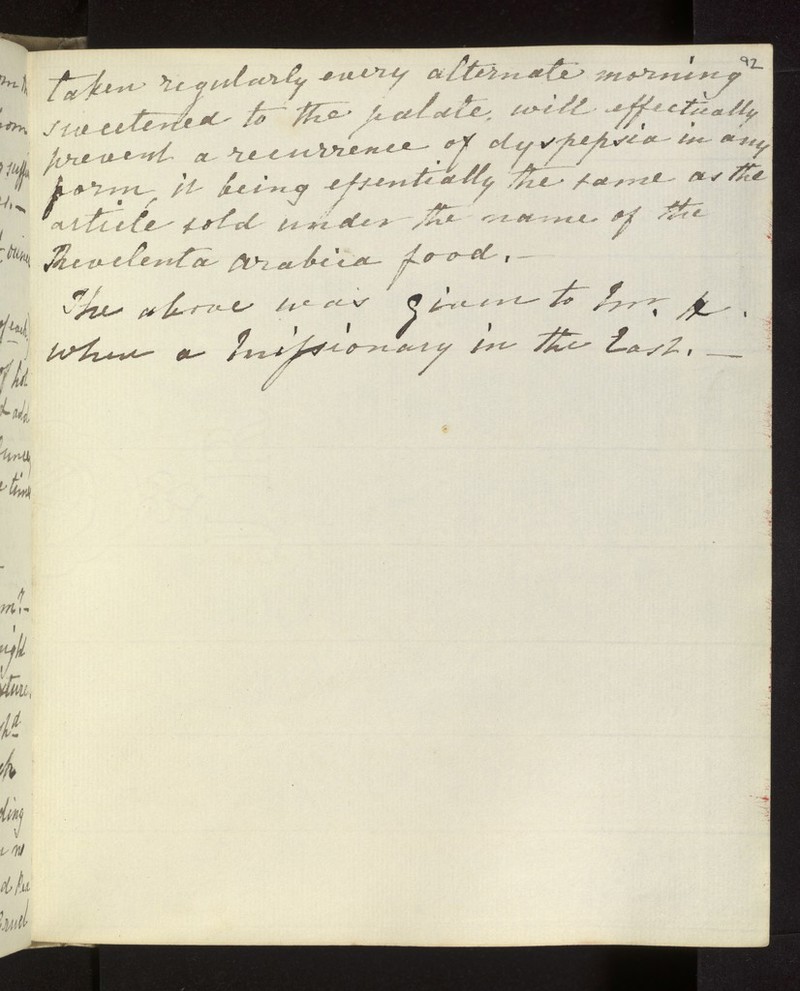 92
taken regularly every alternate morning
sweetened to the palate, will effectually
prevent a recurrence of dyspepsia in any
form, it being essentially the same as the
article sold under the name of the
Revelenta Arabica food. —
The above was given to Mr. H.
when a Missionary in the East. —